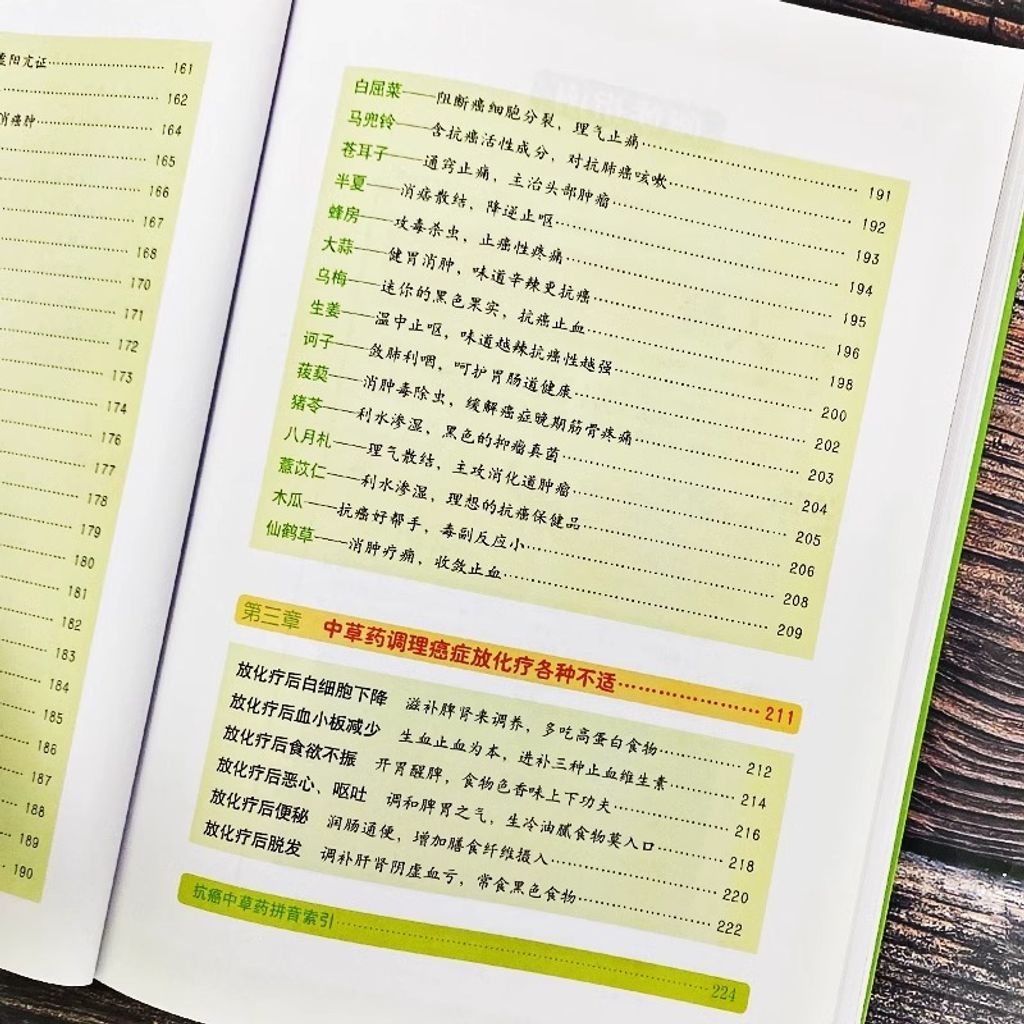 阳亢证……161
162
癌肿……164
165
166
167
168
170
171
172
173
174
176
177
178
179
180
181
182
183
184
185
186
187
188
189
190
白屈菜——阻断癌细胞分裂，理气止痛……191
马兜铃——含抗癌活性成分，对抗肺癌咳嗽……192
苍耳子——通窍止痛，主治头部肿瘤……193
半夏——消痞散结，降逆止呕……194
蜂房——攻毒杀虫，止癌性疼痛……195
大蒜——健胃消肿，味道辛辣更抗癌……196
乌梅——迷你的黑色果实，抗癌止血……198
生姜——温中止呕，味道越辣抗癌性越强……200
诃子——敛肺利咽，呵护胃肠道健康……202
菝葜——消肿毒除虫，缓解癌症晚期筋骨疼痛……203
猪苓——利水渗湿，黑色的抑瘤真菌……204
八月札——理气散结，主攻消化道肿瘤……205
薏苡仁——利水渗湿，理想的抗癌保健品……206
木瓜——抗癌好帮手，毒副反应小……208
仙鹤草——消肿疗痛，收敛止血……209
第三章 中草药调理癌症放化疗各种不适……211
放化疗后白细胞下降 滋补脾肾来调养，多吃高蛋白食物……212
放化疗后血小板减少 生血止血为本，进补三种止血维生素……214
放化疗后食欲不振 开胃醒脾，食物色香味上下功夫……216
放化疗后恶心、呕吐 调和脾胃之气，生冷油腻食物莫入口……218
放化疗后便秘 润肠通便，增加膳食纤维摄入……220
放化疗后脱发 调补肝肾阴虚血亏，常食黑色食物……222
抗癌中草药拼音索引……224